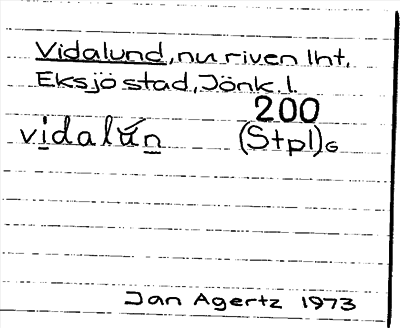 Vidalund, nu riven lht,
Eksjö stad, Jönk. l.
200
vidalún (Stpl)G
Jan Agertz 1973